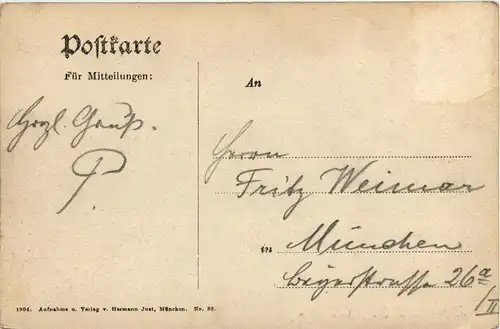 Postkarte
Für Mitteilungen:
Hrzl. Gruß.
P.
An
Herrn
Fritz Weimar
in München
Bayerstrasse 26a/II
1904. Aufnahme u. Verlag v. Hermann Just, München. No. 33.